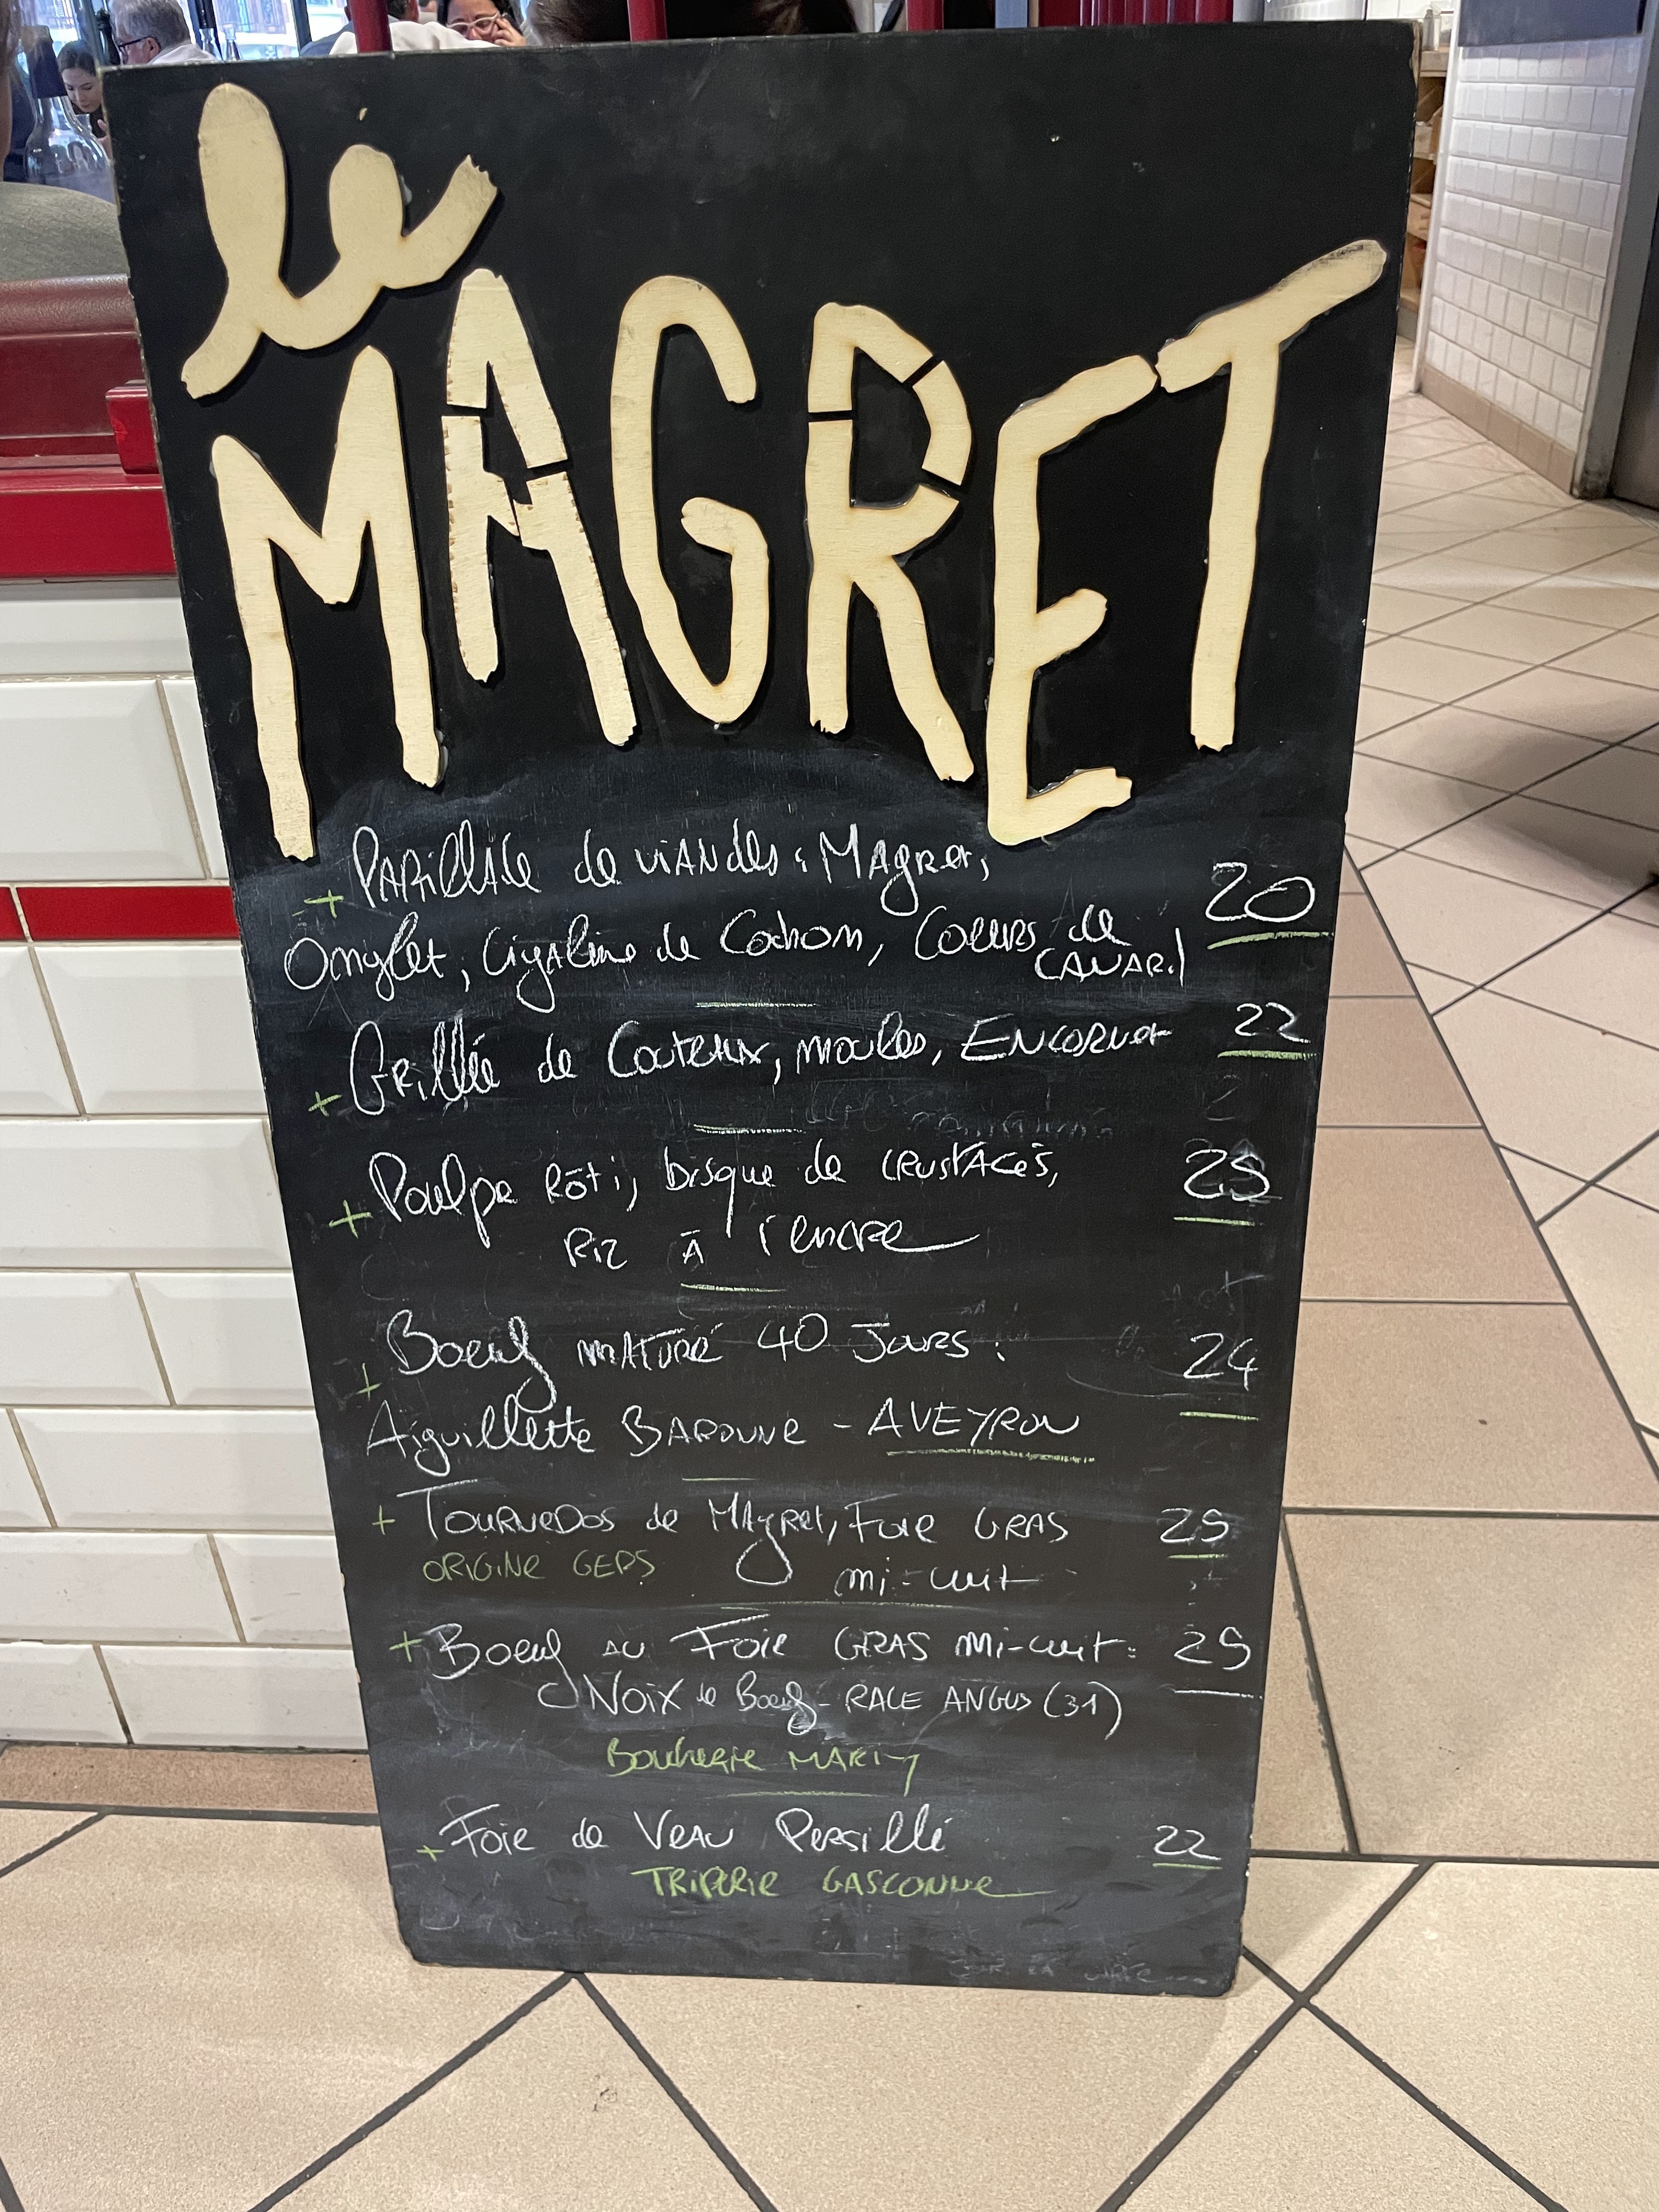 le
MAGRET
+ PARillAdE de viANdes : MAgret, 20
Onglet, Cigaline de Cochon, Coeurs de
CANARd
+ GRillée de Couteaux, moules, ENCORNet 22
+ Poulpe Rôti, bisque de CRUSTACés, 25
Riz à l'encre
+ Boeuf mATURé 40 Jours : 24
Aiguillette BARONNE - AVEYRON
+ TOURNEDOS de MAgret, FOiE GRAS 25
ORIGINE GERS mi-cuit
+ Boeuf AU FOiE GRAS Mi-cuit : 25
Noix de Boeuf - RACE ANGUS (31)
Boucherie MARTY
+ Foie de VEAU PERSillé 22
TRIPERIE GASCONNE